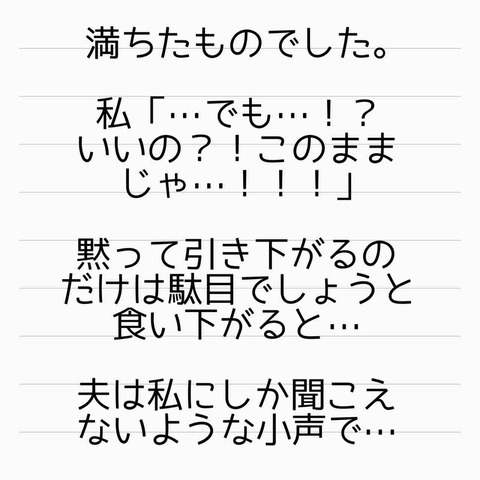 満ちたものでした。
私「…でも…！？
いいの？！このまま
じゃ…！！！」
黙って引き下がるの
だけは駄目でしょうと
食い下がると…
夫は私にしか聞こえ
ないような小声で…